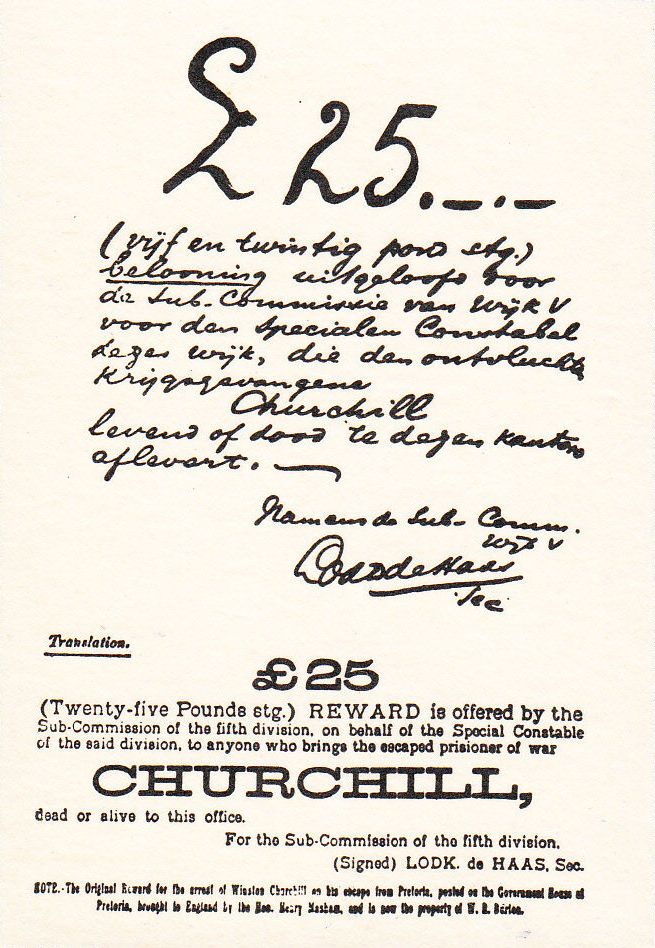 £ 25.—.—
(vijf en twintig pond stg.)
belooning uitgeloofd door
de Sub-Commissie van Wijk V
voor den Specialen Constabel
dezes wijk, die den ontvluchte
Krijgsgevangene
Churchill
levend of dood te dezen kantore
aflevert.—
Namens de Sub-Comm.
Wijk V
Lodk de Haas
Sec
Translation.
£25
(Twenty-five Pounds stg.) REWARD is offered by the
Sub-Commission of the fifth division, on behalf of the Special Constable
of the said division, to anyone who brings the escaped prisioner of war
CHURCHILL,
dead or alive to this office.
For the Sub-Commission of the fifth division,
(Signed) LODK. de HAAS, Sec.
NOTE.-The Original Reward for the arrest of Winston Churchill on his escape from Pretoria, posted on the Government House at
Pretoria, brought to England by the Hon. Henry Masham, and is now the property of W. R. Burton.